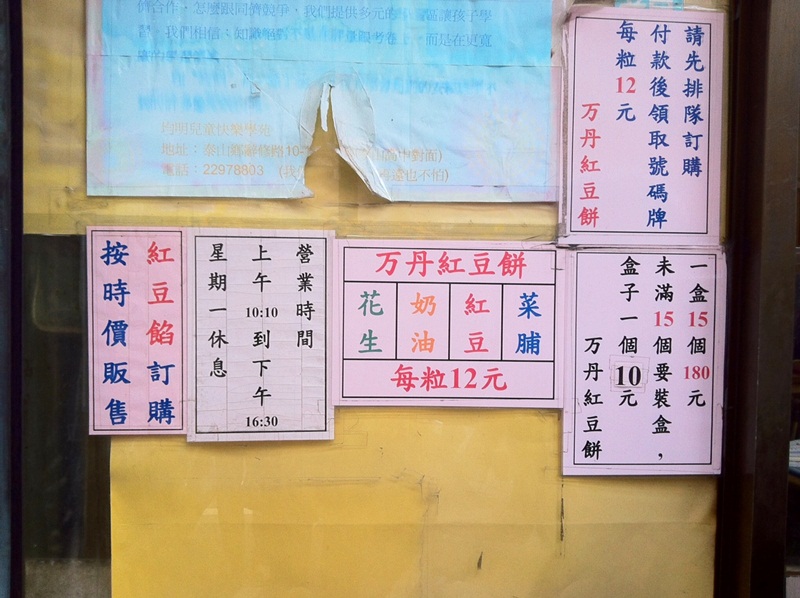 儕合作，怎麼跟同儕競爭，我們提供多元的
讓孩子學
習，我們相信
而是在更寬
地址：泰山鄉
高中對面)
電話：22978803 (我
遠也不怕)
請先排隊訂購
付款後領取號碼牌
每粒12元
万丹紅豆餅
紅豆餡訂購
按時價販售
營業時間
上午10:10到下午16:30
星期一休息
万丹紅豆餅
花生
奶油
紅豆
菜脯
每粒12元
一盒15個180元
未滿15個要裝盒，
盒子一個10元
万丹紅豆餅